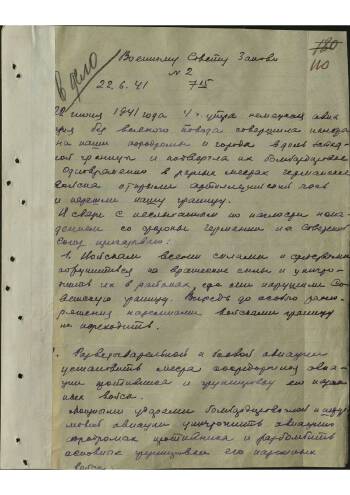 в дело
180
110
Военному Совету Запово
№ 2
22.6.41 7 15
22 июня 1941 года 4 ч. утра немецкая авиа
ция без всякого повода совершила налеты
на наши аэродромы и города вдоль запад
ной границы и подвергла их бомбардировке
Одновременно в разных местах германские
войска открыли артиллерийский огонь
и перешли нашу границу.
В связи с неслыханным по наглости напа
дением со стороны Германии на Советский
Союз приказываю:
1. Войскам всеми силами и средствами
обрушиться на вражеские силы и уничто
жить их в районах, где они нарушили Со
ветскую границу. Впредь до особого распо
ряжения наземными войсками границу
не переходить.
2. Разведывательной и боевой авиацией
установить места сосредоточения авиа
ции противника и группировку его назем
ных войск.
Мощными ударами бомбардировочной и штур
мовой авиации уничтожить авиацию
на аэродромах противника и разбомбить
основные группировки его наземных
войск.